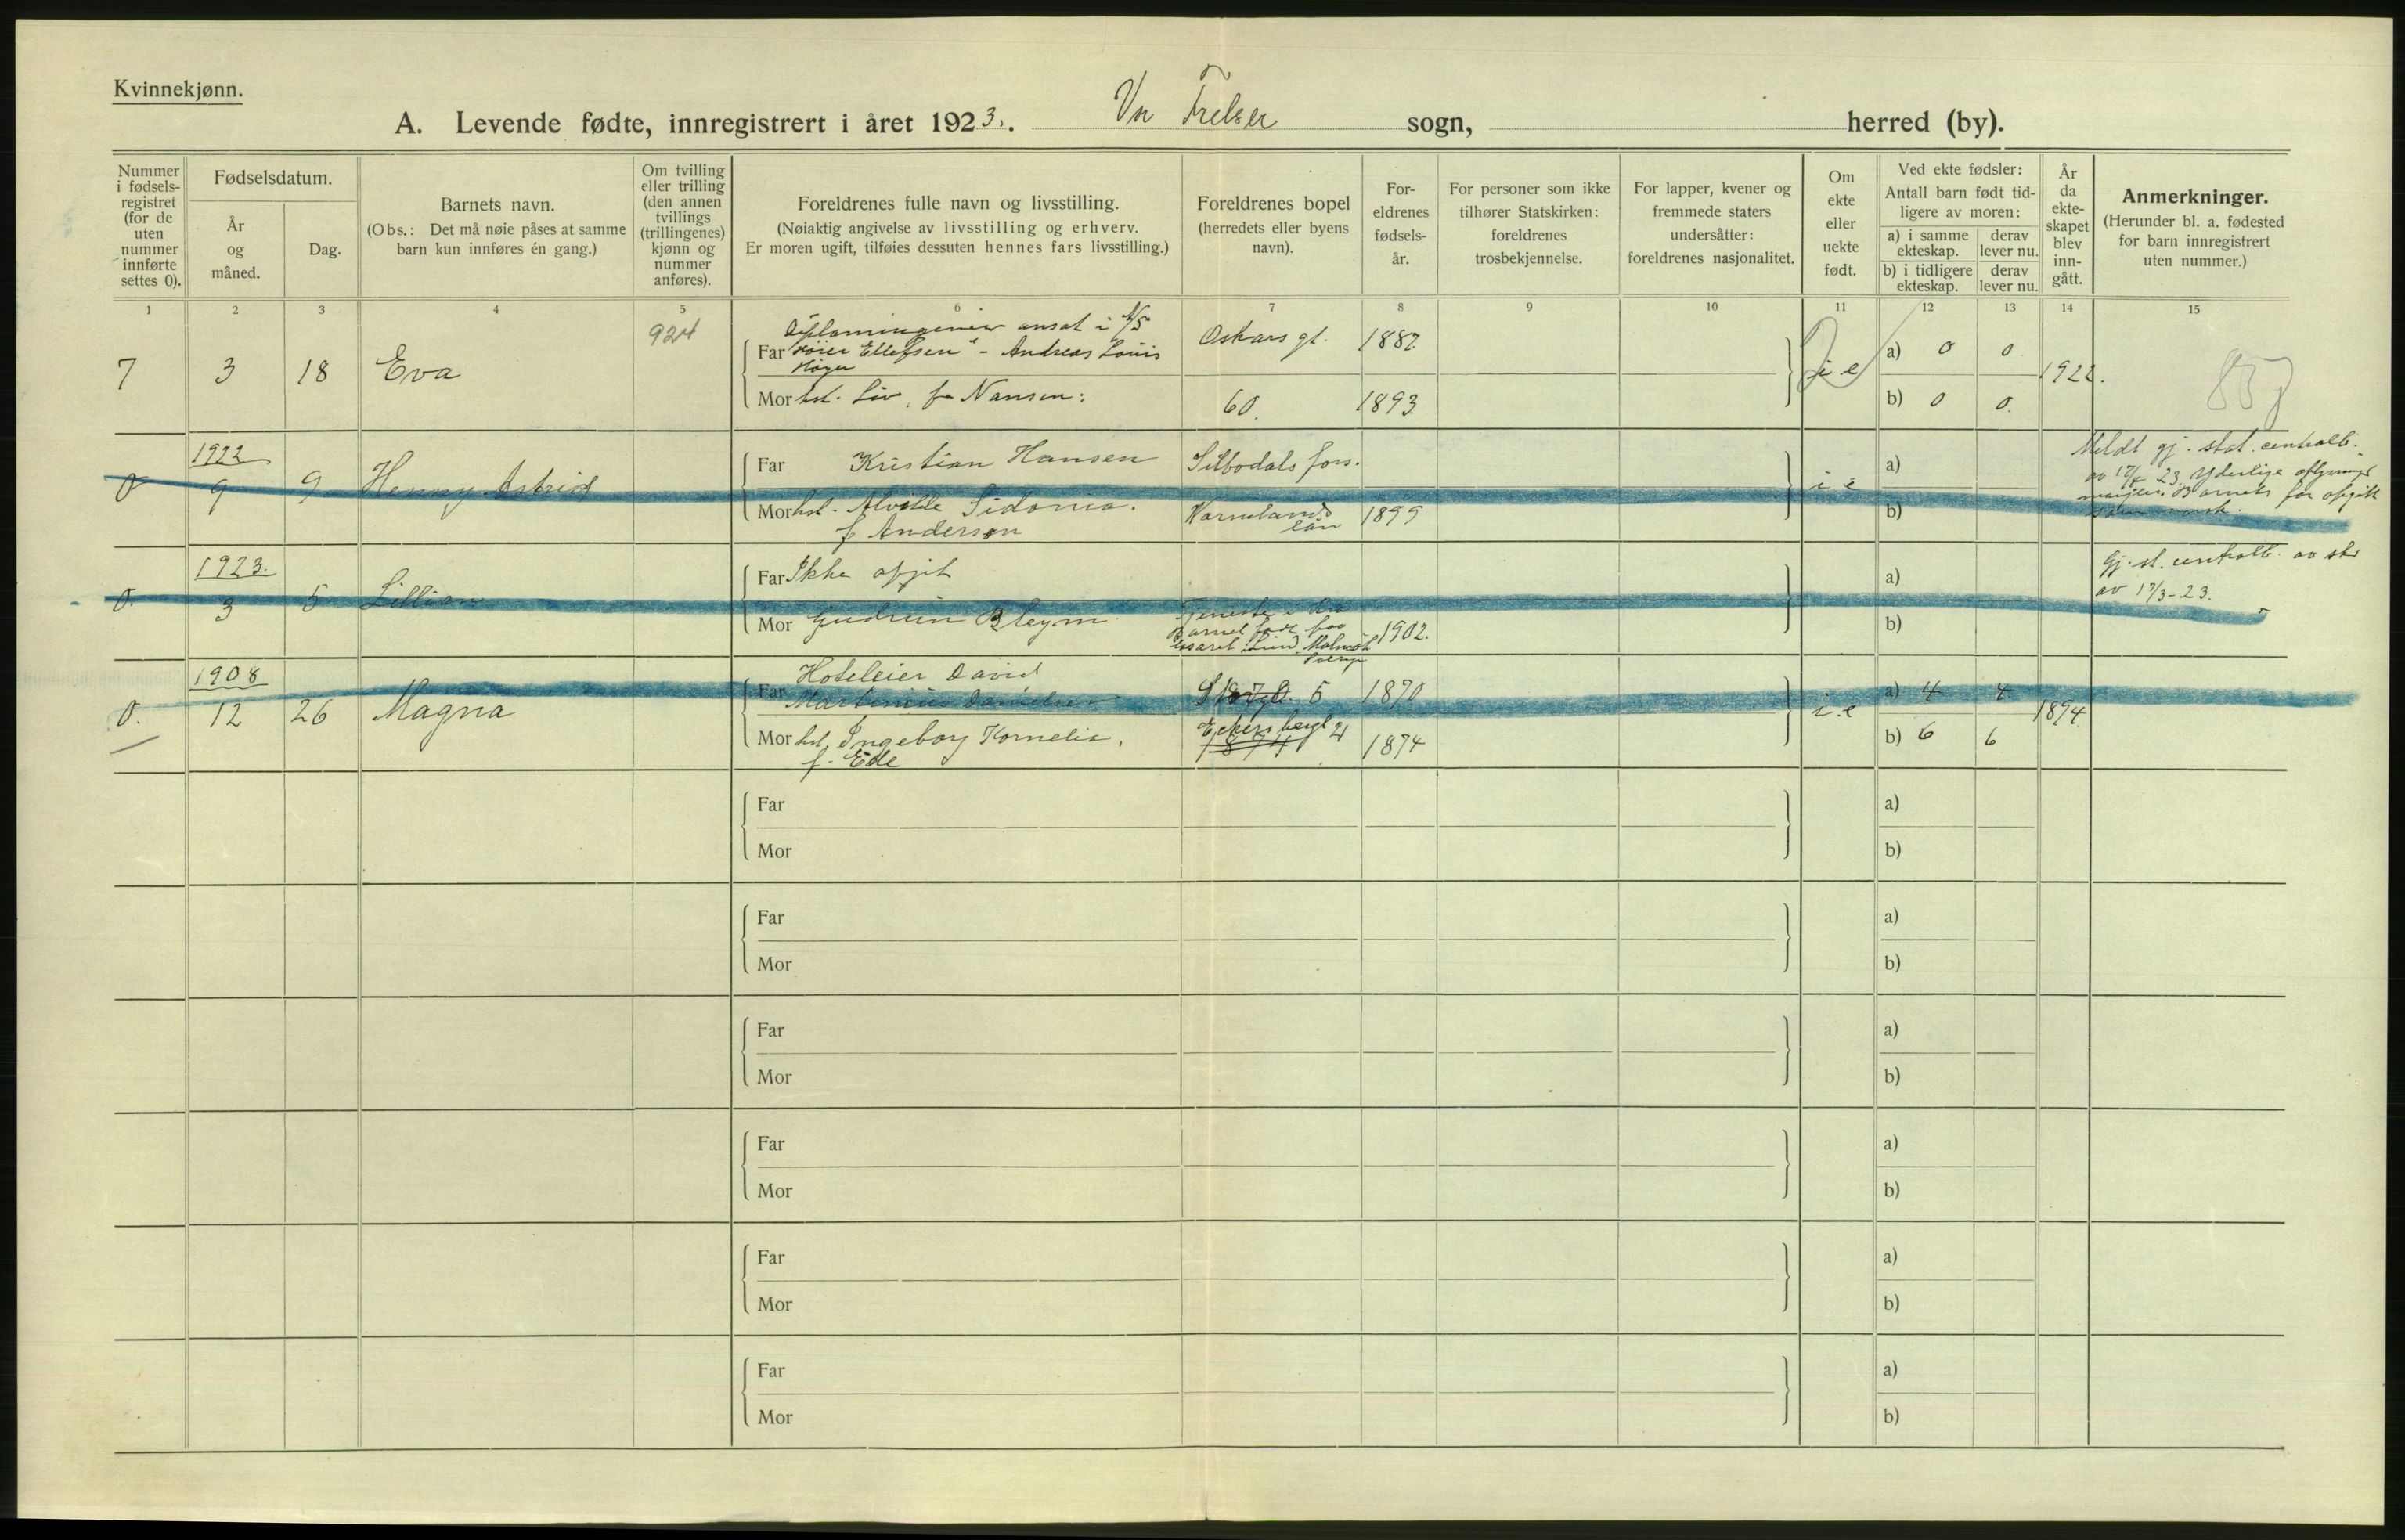 Kvinnekjønn.
A. Levende fødte, innregistrert i året 1923. Vor Frelser sogn, herred (by).
Nummer i fødsels-registret (for de uten nummer innførte settes 0).
Fødselsdatum.
År og måned.
Dag.
Barnets navn.
(Obs.: Det må nøie påses at samme barn kun innføres én gang.)
Om tvilling eller trilling (den annen tvillings (trillingenes) kjønn og nummer anføres).
Foreldrenes fulle navn og livsstilling.
(Nøiaktig angivelse av livsstilling og erhverv.
Er moren ugift, tilføies dessuten hennes fars livsstilling.)
Foreldrenes bopel
(herredets eller byens navn).
For-eldrenes fødsels-år.
For personer som ikke tilhører Statskirken: foreldrenes trosbekjennelse.
For lapper, kvener og fremmede staters undersåtter: foreldrenes nasjonalitet.
Om ekte eller uekte født.
Ved ekte fødsler:
Antall barn født tid-ligere av moren:
a) i samme ekteskap.
derav lever nu.
b) i tidligere ekteskap.
derav lever nu.
År da ekte-skapet blev inn-gått.
Anmerkninger.
(Herunder bl. a. fødested for barn innregistrert uten nummer.)
1 2 3 4 5 6 7 8 9 10 11 12 13 14 15
924
Diplomingeniør ansat i A/S
7 3 18 Eva
Far "Høier Ellefsen" - Andreas Louis
Høyer
Oskars gt. 1887
Mor hst. Liv, f. Nansen:
60. 1893
i e
a) 0 0
b) 0 0.
1922.
1922
0 9 9 Henny Astrid
Far Kristian Hansen
Silbodals fors.
Mor hst. Alvilde Sidonia.
f Anderson
Warmlands län 1899
i e
a)
b)
Meldt gj. stat. centralb.
av 17/4 23 Yderlige oplysninger
mangler. Barnets far opgitt
1923.
0. 3 5 Lillian
Far Ikke opgit
Mor Gudrun Bleym
Tjeneste i Kra
Barnet født paa
Lund Malmöh
Sverige
1902.
a)
b)
Gj. st. centralb. av skr
av 17/3-23.
1908
0. 12 26 Magna
Hoteleier David
Far Martinius Danielsen
5 1870
Mor hst. Ingeborg Kornelia,
f. Ede
Eckersbergt 21
1874
i e
a) 4 4
b) 6 6
1894
Far
Mor
a)
b)
Far
Mor
a)
b)
Far
Mor
a)
b)
Far
Mor
a)
b)
Far
Mor
a)
b)
Far
Mor
a)
b)